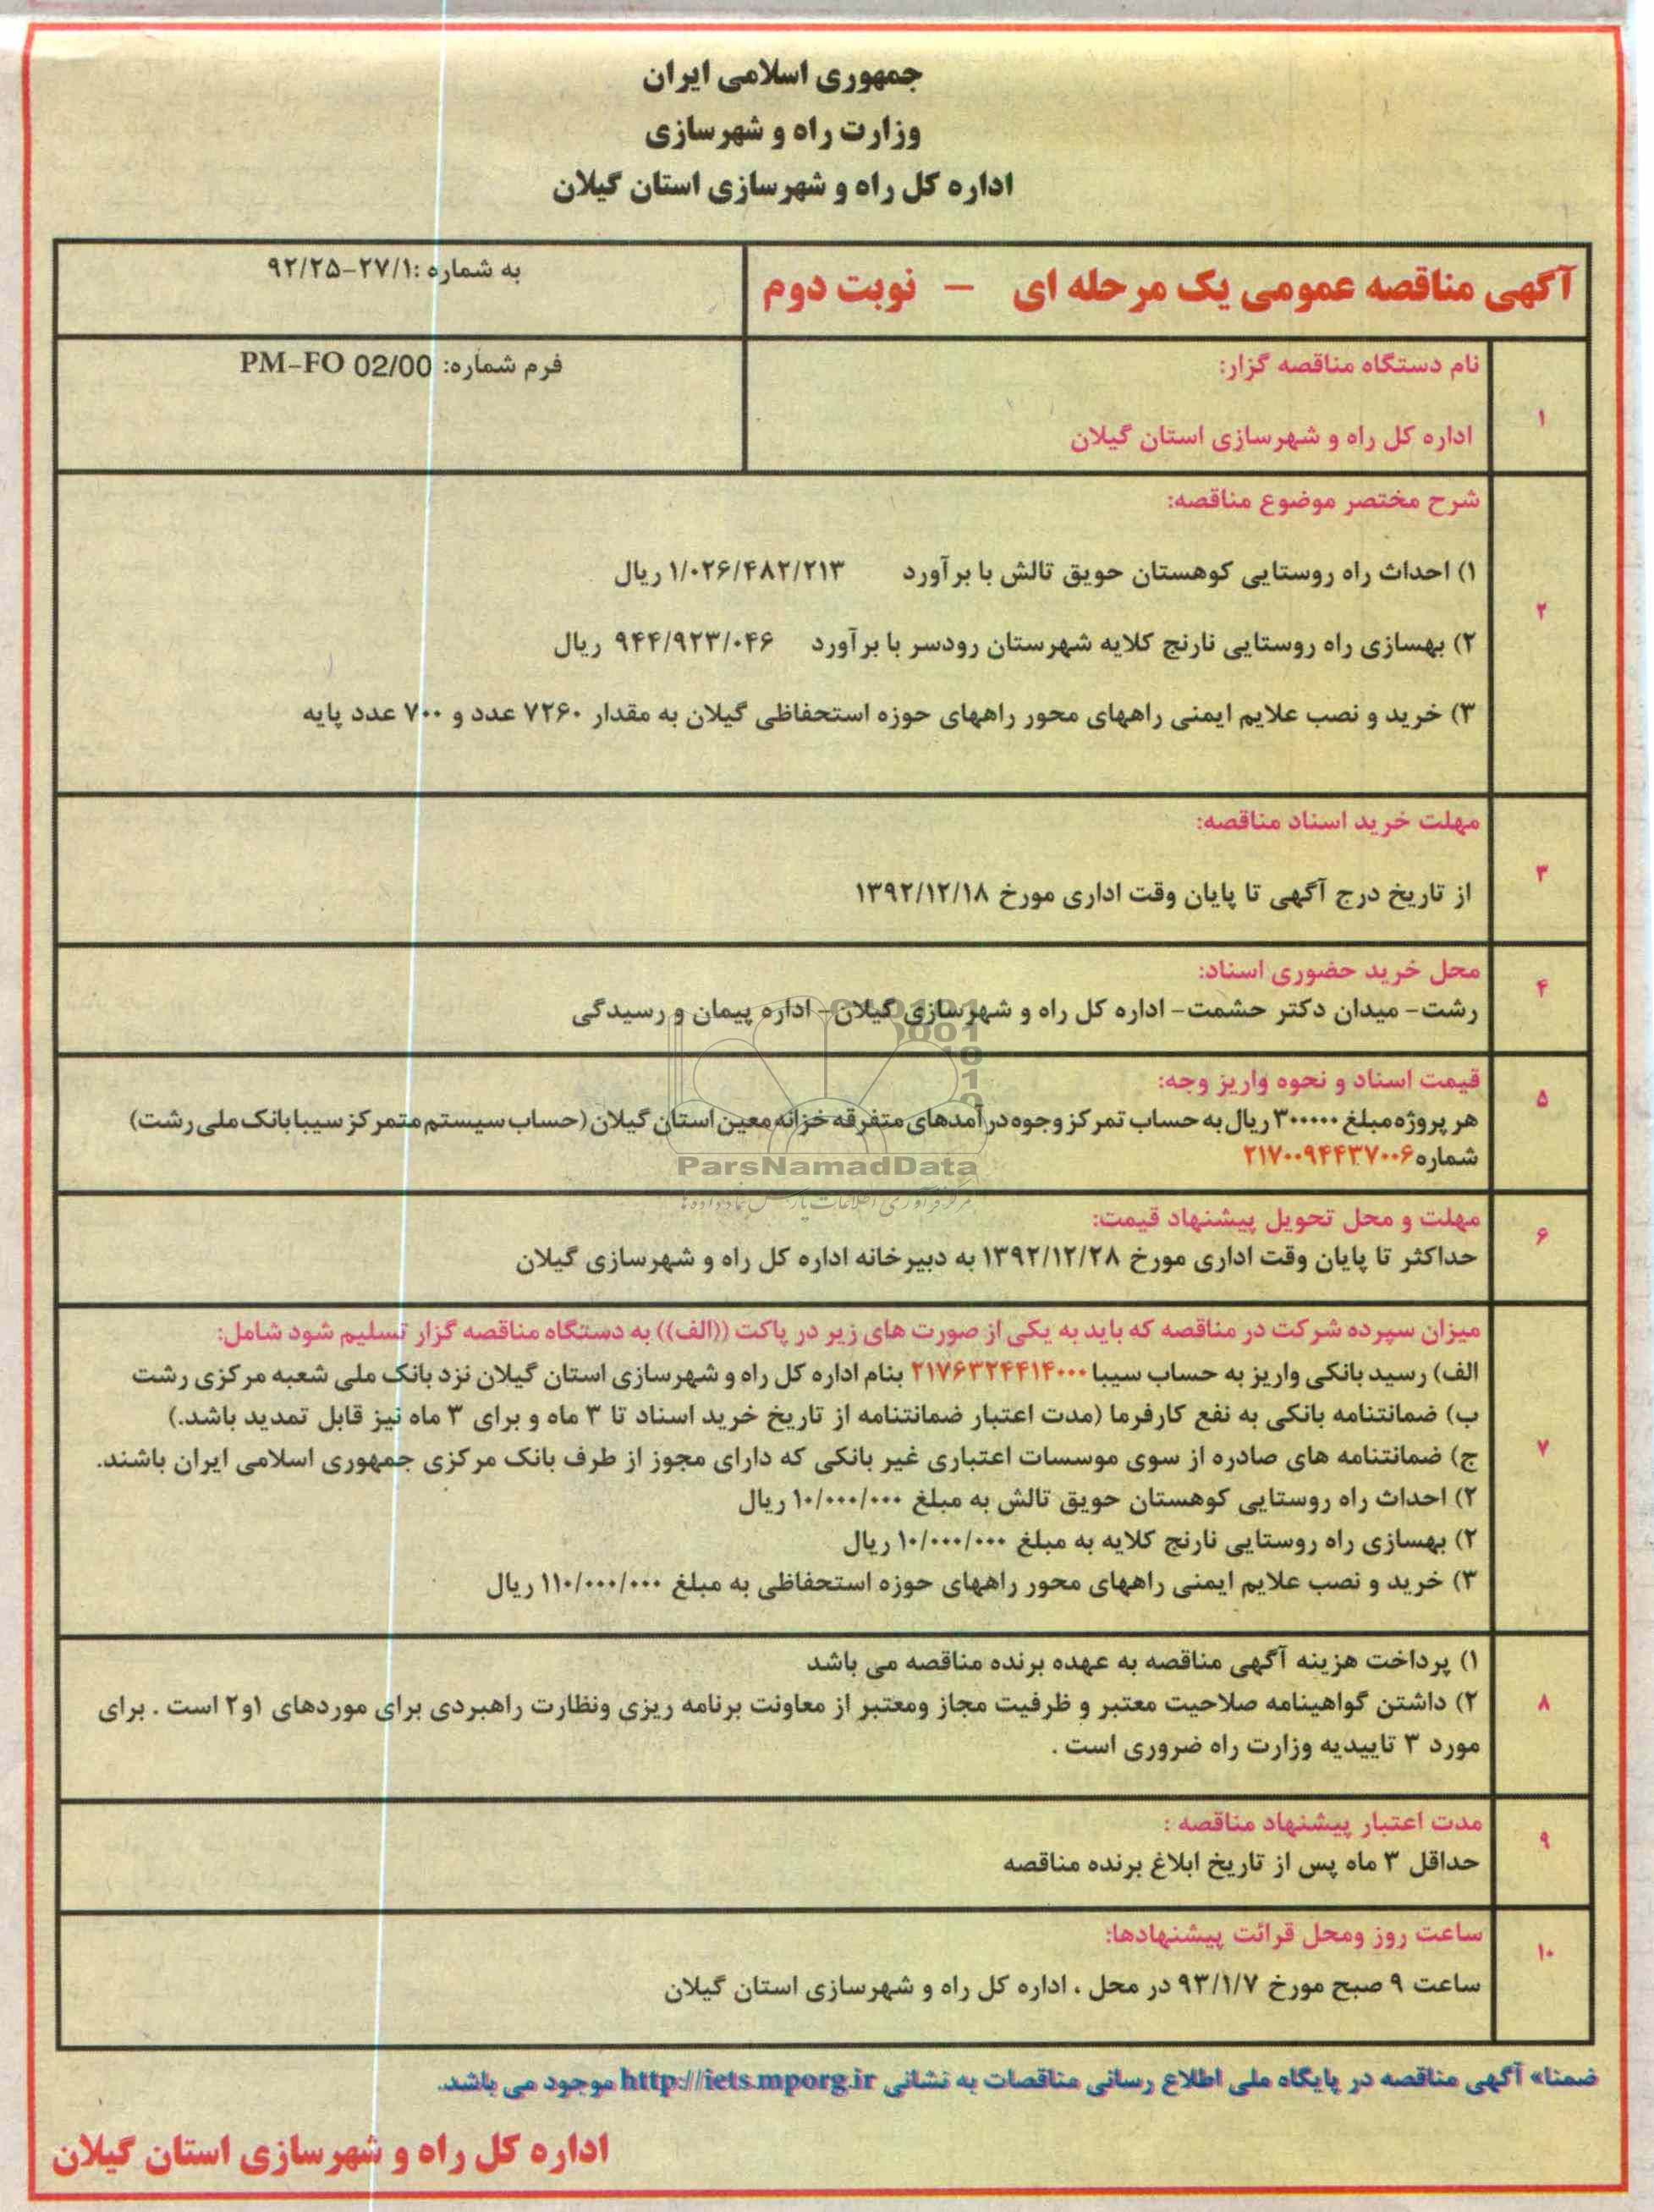 جمهوری اسلامی ایران
وزارت راه و شهرسازی
اداره کل راه و شهرسازی استان گیلان
آگهی مناقصه عمومی یک مرحله ای – نوبت دوم
به شماره :۲۷/۱-۹۲/۲۵
۱
نام دستگاه مناقصه گزار:
اداره کل راه و شهرسازی استان گیلان
فرم شماره: PM-FO 02/00
۲
شرح مختصر موضوع مناقصه:
۱) احداث راه روستایی کوهستان حویق تالش با برآورد ۱/۰۲۶/۴۸۲/۲۱۳ ریال
۲) بهسازی راه روستایی نارنج کلایه شهرستان رودسر با برآورد ۹۴۴/۹۲۳/۰۴۶ ریال
۳) خرید و نصب علایم ایمنی راههای محور راههای حوزه استحفاظی گیلان به مقدار ۷۲۶۰ عدد و ۷۰۰ عدد پایه
۳
مهلت خرید اسناد مناقصه:
از تاریخ درج آگهی تا پایان وقت اداری مورخ ۱۳۹۲/۱۲/۱۸
۴
محل خرید حضوری اسناد:
رشت- میدان دکتر حشمت- اداره کل راه و شهرسازی گیلان- اداره پیمان و رسیدگی
۵
قیمت اسناد و نحوه واریز وجه:
هر پروژه مبلغ ۳۰۰۰۰۰ ریال به حساب تمرکز وجوه درآمدهای متفرقه خزانه معین استان گیلان (حساب سیستم متمرکز سیبا بانک ملی رشت)
شماره ۲۱۷۰۰۹۴۴۳۷۰۰۶
ParsNamadData
مرکز فرآوری اطلاعات پارس نماد داده ها
۶
مهلت و محل تحویل پیشنهاد قیمت:
حداکثر تا پایان وقت اداری مورخ ۱۳۹۲/۱۲/۲۸ به دبیرخانه اداره کل راه و شهرسازی گیلان
۷
میزان سپرده شرکت در مناقصه که باید به یکی از صورت های زیر در پاکت ((الف)) به دستگاه مناقصه گزار تسلیم شود شامل:
الف) رسید بانکی واریز به حساب سیبا ۲۱۷۶۳۲۴۴۱۴۰۰۰ بنام اداره کل راه و شهرسازی استان گیلان نزد بانک ملی شعبه مرکزی رشت
ب) ضمانتنامه بانکی به نفع کارفرما (مدت اعتبار ضمانتنامه از تاریخ خرید اسناد تا ۳ ماه و برای ۳ ماه نیز قابل تمدید باشد.)
ج) ضمانتنامه های صادره از سوی موسسات اعتباری غیر بانکی که دارای مجوز از طرف بانک مرکزی جمهوری اسلامی ایران باشند.
۲) احداث راه روستایی کوهستان حویق تالش به مبلغ ۱۰/۰۰۰/۰۰۰ ریال
۲) بهسازی راه روستایی نارنج کلایه به مبلغ ۱۰/۰۰۰/۰۰۰ ریال
۳) خرید و نصب علایم ایمنی راههای محور راههای حوزه استحفاظی به مبلغ ۱۱۰/۰۰۰/۰۰۰ ریال
۸
۱) پرداخت هزینه آگهی مناقصه به عهده برنده مناقصه می باشد
۲) داشتن گواهینامه صلاحیت معتبر و ظرفیت مجاز ومعتبر از معاونت برنامه ریزی ونظارت راهبردی برای موردهای ۱و۲ است . برای
مورد ۳ تاییدیه وزارت راه ضروری است .
۹
مدت اعتبار پیشنهاد مناقصه :
حداقل ۳ ماه پس از تاریخ ابلاغ برنده مناقصه
۱۰
ساعت روز ومحل قرائت پیشنهادها:
ساعت ۹ صبح مورخ ۹۳/۱/۷ در محل ، اداره کل راه و شهرسازی استان گیلان
ضمنا» آگهی مناقصه در پایگاه ملی اطلاع رسانی مناقصات به نشانی http://iets.mporg.ir موجود می باشد.
اداره کل راه و شهرسازی استان گیلان